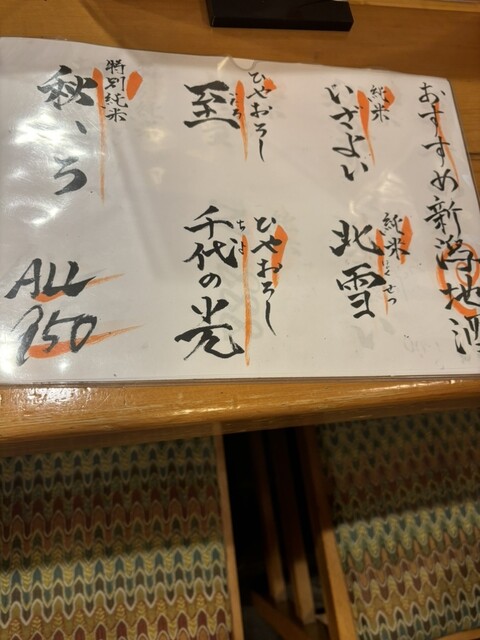 おすすめ新潟地酒
純米
いさよい
純米
ほくせつ
北雪
ひやおろし
いたる
至
ひやおろし
ちよ
千代の光
特別純米
秋、ち
ALL
950